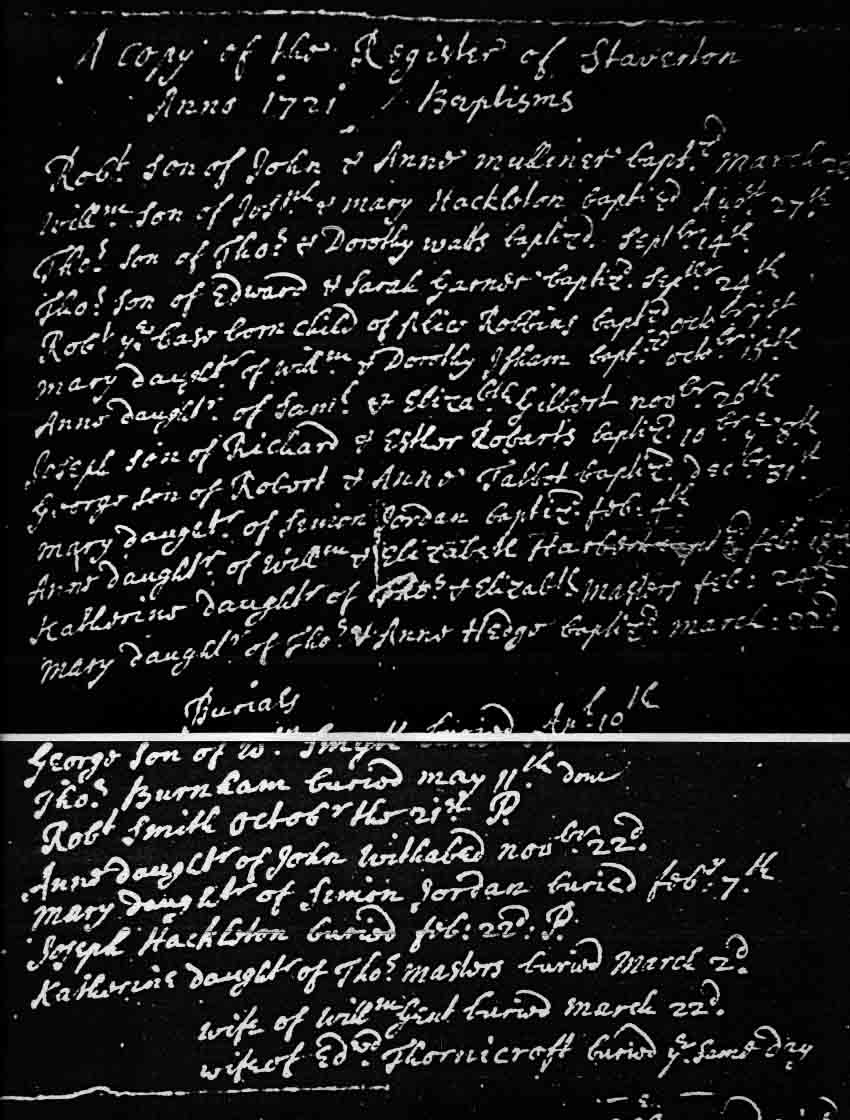 A Copy of the Register of Staverton
Anno 1721 / Baptisms
Robt. son of John & Anne mulliner bapt.d March
Willm. son of Joseph & mary Hackleton baptized Augst. 27th
Tho.s son of Tho.s & Dorothy watts baptizd. Septbr. 14th.
Tho.s son of Edward & Sarah Garner baptizd. Septbr. 24th
Robt ye. base born child of Alice Robbins baptizd octbr. 1st
mary daughtr. of willm & Dorothy Isham bapt.d octbr. 15th
Anne daughtr. of Saml & Elizabth Gilbert novbr. 26th
Joseph son of Richard & Esther Robarts baptizd. 10br. ye. 8th
George son of Robert & Anne Talbot baptizd. Decbr. 31.st
mary daughtr. of Simon Jordan baptizd. feb: 4th
Anne daughtr. of willm & Elizabeth feb:
Katherine daughtr of Tho.s & Elizabth masters feb: 24th
mary daughtr. of Tho.s & Anne Hedge baptizd. march: 22d.
Burials
George son of Wm. Smyth buried Apl. 10th
Tho.s Burnham buried may 11th. done
Robt Smith Octobr the 21st. P.
Anne daughtr of John Withabed novbr. 22d.
mary daughtr of Simon Jordan buried feby. 7.th
Joseph Hackleton buried feb: 22d: P.
Katherine daughtr of Tho.s masters buried March 2d.
wife of willm Gent buried march 22d.
wife of Edwd. Thornicroft buried ye. Same day